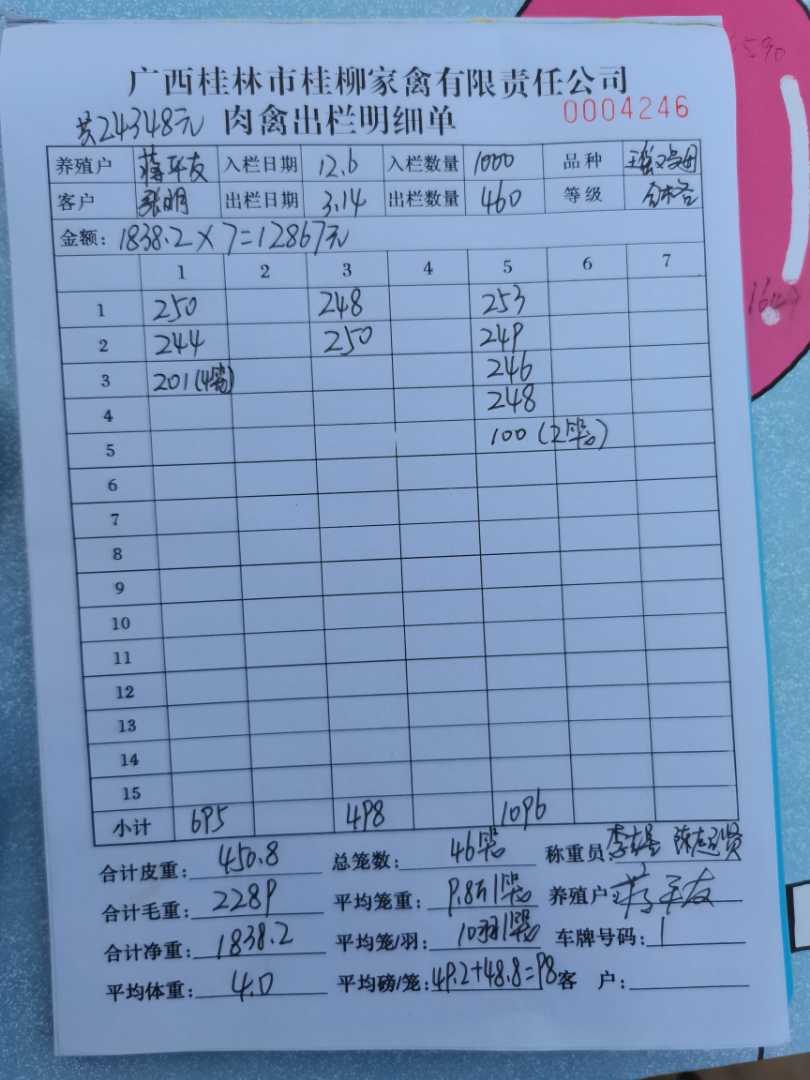 广西桂林市桂柳家禽有限责任公司
共24348元 肉禽出栏明细单 0004246
养殖户 蒋平友 入栏日期 12.6 入栏数量 1000 品种
客户 张明 出栏日期 3.14 出栏数量 460 等级 合格
金额: 1838.2×7=12867元
1 2 3 4 5 6 7
1 250 248 253
2 244 250 249
3 201(4笼) 246
4 248
5 100(2笼)
6
7
8
9
10
11
12
13
14
15
小计 695 498 1096
合计皮重: 450.8 总笼数: 46笼 称重员
合计毛重: 2289 平均笼重: 9.8斤/笼 养殖户 蒋平友
合计净重: 1838.2 平均笼/羽: 10羽/笼 车牌号码: /
平均体重: 4.0 平均磅/笼: 49.2+48.8=98 客 户: